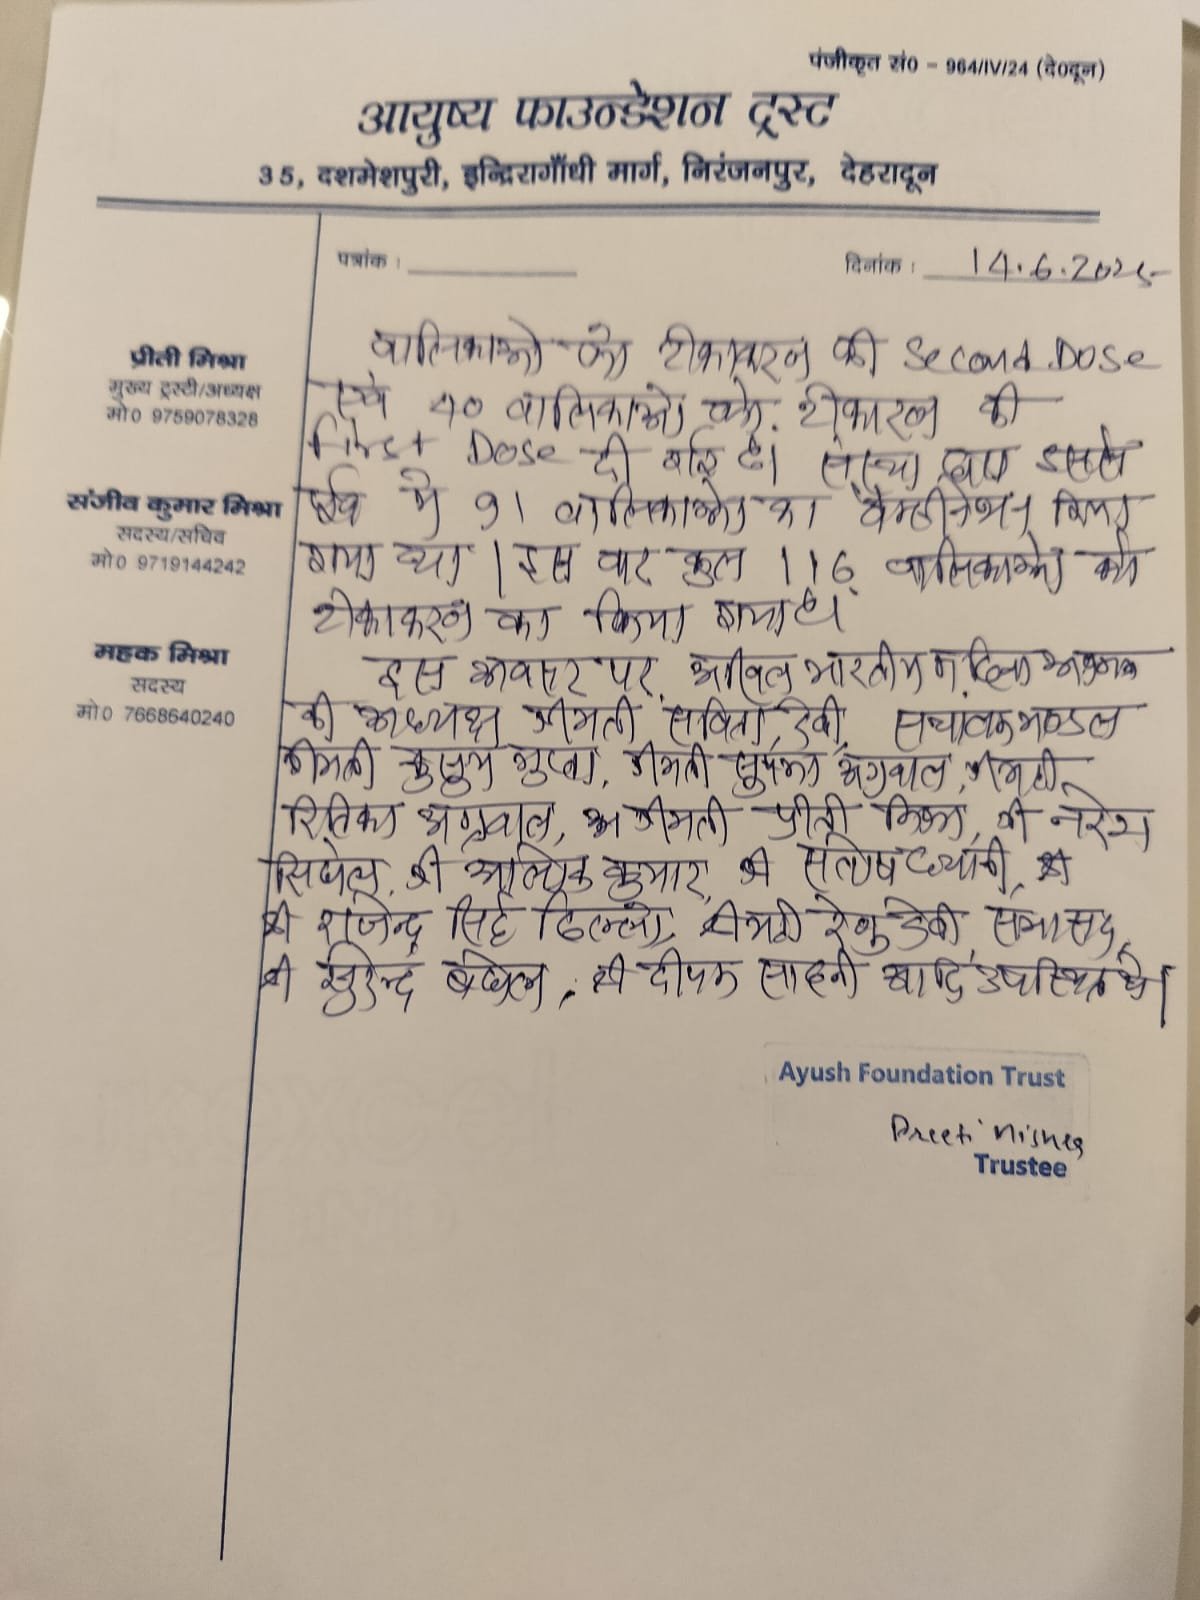 पंजीकृत सं0 - 964/IV/24 (दे0दून)
आयुष्य फाउन्डेशन ट्रस्ट
35, दशमेशपुरी, इन्द्रिरागाँधी मार्ग, निरंजनपुर, देहरादून
पत्रांक :
दिनांक : 14.6.2025
प्रीती मिश्रा
मुख्य ट्रस्टी/अध्यक्ष
मो0 9759078328
संजीव कुमार मिश्रा
सदस्य/सचिव
मो0 9719144242
महक मिश्रा
सदस्य
मो0 7668640240
बालिकाओ को टीकाकरन की Second Dose
एवं 40 बालिकाओ को टीकारन की
First Dose दी गई है। संस्था द्वारा इससे
पूर्व मे 91 बालिकाओ का किया
गया था। इस बार कुल 116 बालिकाओ को
टीकाकरन का किया गया है।
इस अवसर पर अखिल भारतीय महिला
की अध्यक्ष श्रीमती सविता देवी,
श्रीमती कुसुम गुप्ता, श्रीमती अग्रवाल, श्रीमती
रितिका अग्रवाल, श्रीमती प्रीती मिश्रा, श्री नरेश
श्री कुमार, श्री श्री
श्री राजेन्द्र सिंह ढिल्लो, श्रीमती रेनु देवी सभासद,
श्री सुरेन्द्र श्री दीपक साहनी आदि उपस्थित थे।
Ayush Foundation Trust
Preeti Mishra
Trustee